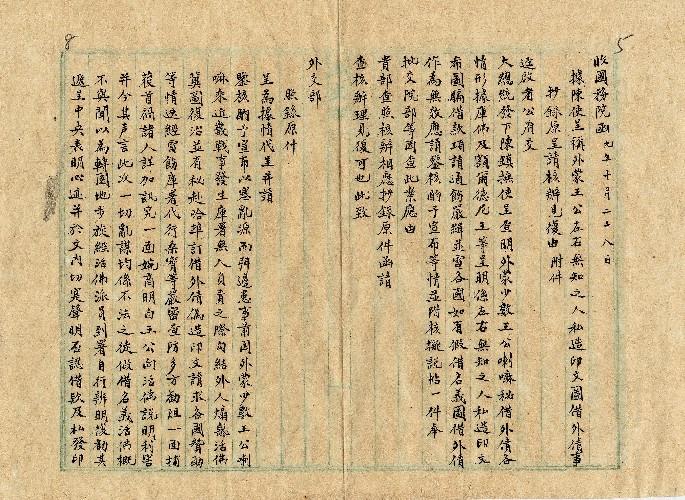 5
收國務院函 九年十月二十八日
據陳使呈稱外蒙王公左右無知之人私造印文圖借外債事
抄錄原呈請核辦見復由 附件
逕啟者公府交
大總統發下陳鎮撫使呈查明外蒙少數王公喇嘛秘借外債各
情形據庫佛及額爾德尼王等呈明係左右無知之人私造印文
希圖騙借款項請通飭嚴緝並電各國如有假借名義圖借外債
作為無效應請鑒核飭予宣布等情並附核擬說帖一件奉
批交院部等因查此案應由
貴部查照核辦相應抄錄原件函請
查核辦理見復可也此致
外交部
照錄原件
呈為據情代呈并請
鑒核飭予宣布以息亂源而弭邊患事前因外蒙少數王公喇
嘛乘近畿戰事發生庫署無人負責之際勾結外人煽惑活佛
冀圖復治並有秘赴哈埠訂借外債偽造印文請求各國贊助
等情迭經電飭庫署代行 等嚴密查防多方勸阻一面捕
獲首禍諸人詳加訊究一面婉商明白王公向活佛說明利害
并令其聲言此次一切亂謀均係不法之徒假借名義活佛概
不與聞以為轉圜地步旋經活佛派員到署自行辨明後勸其
遞呈中央表明心迹并於文內切實聲明否認借欵及私發印
8